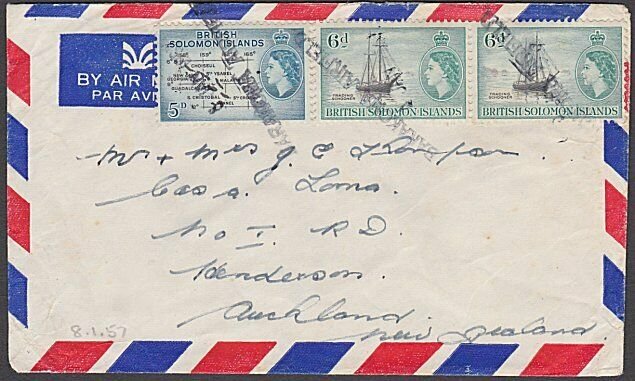 BY AIR M
PAR AVIO
BRITISH
SOLOMON ISLANDS
156° 159° 165°
CHOISEUL
YSABEL
GUADALC
S. CRISTOBAL
5D
6d
TRADING
SCHOONER
BRITISH SOLOMON ISLANDS
6d
TRADING
SCHOONER
BRITISH SOLOMON ISLANDS
Mr + Mrs J. C Thompson.
Casa. Loma.
No I. R.D.
Henderson.
Auckland.
New Zealand.
8.1.57